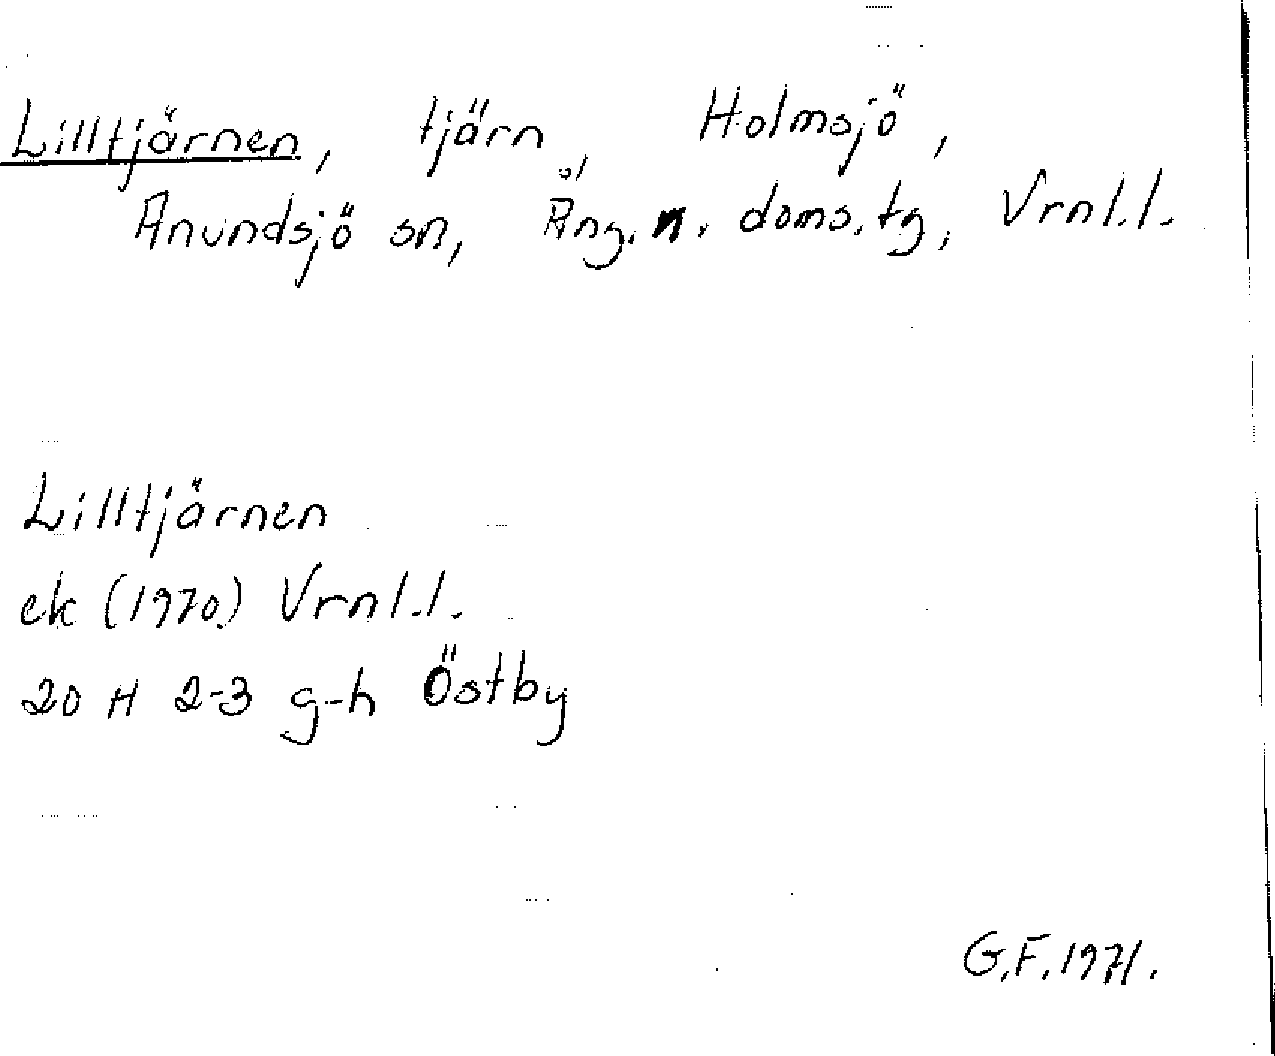 Lilltjärnen, tjärn, Holmsjö,
Anundsjö sn, Ång. n. doms. tg, Vrnl.l.
Lilltjärnen
ek (1970) Vrnl.l.
20 H 2-3 g-h Östby
G.F. 1971.